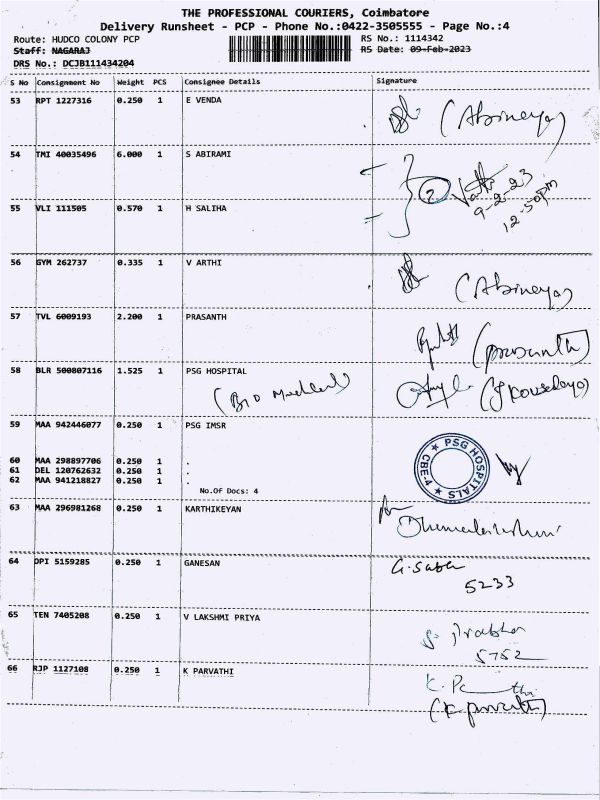 THE PROFESSIONAL COURIERS, Coimbatore
Delivery Runsheet - PCP - Phone No.:0422-3505555 - Page No.:4
Route: HUDCO COLONY PCP RS No.: 1114342
Staff: NAGARAJ RS Date: 09-Feb-2023
DRS No.: DCJB111434204
S No Consignment No Weight PCS Consignee Details Signature
53 RPT 1227316 0.250 1 E VENDA
(Abineya)
54 TMI 40035496 6.000 1 S ABIRAMI
2
9-2-23
12.50pm
55 VLI 111505 0.570 1 H SALIHA
56 GYM 262737 0.335 1 V ARTHI
(Abineya)
57 TVL 6009193 2.200 1 PRASANTH
(prasanth)
58 BLR 500807116 1.525 1 PSG HOSPITAL
59 MAA 942446077 0.250 1 PSG IMSR
PSG HOSPITALS CBE-4
60 MAA 298897706 0.250 1 .
61 DEL 120762632 0.250 1 .
62 MAA 941218827 0.250 1 .
No.Of Docs: 4
63 MAA 296981268 0.250 1 KARTHIKEYAN
64 DPI 5159285 0.250 1 GANESAN
5233
65 TEN 7405208 0.250 1 V LAKSHMI PRIYA
5752
66 RJP 1127108 0.250 1 K PARVATHI